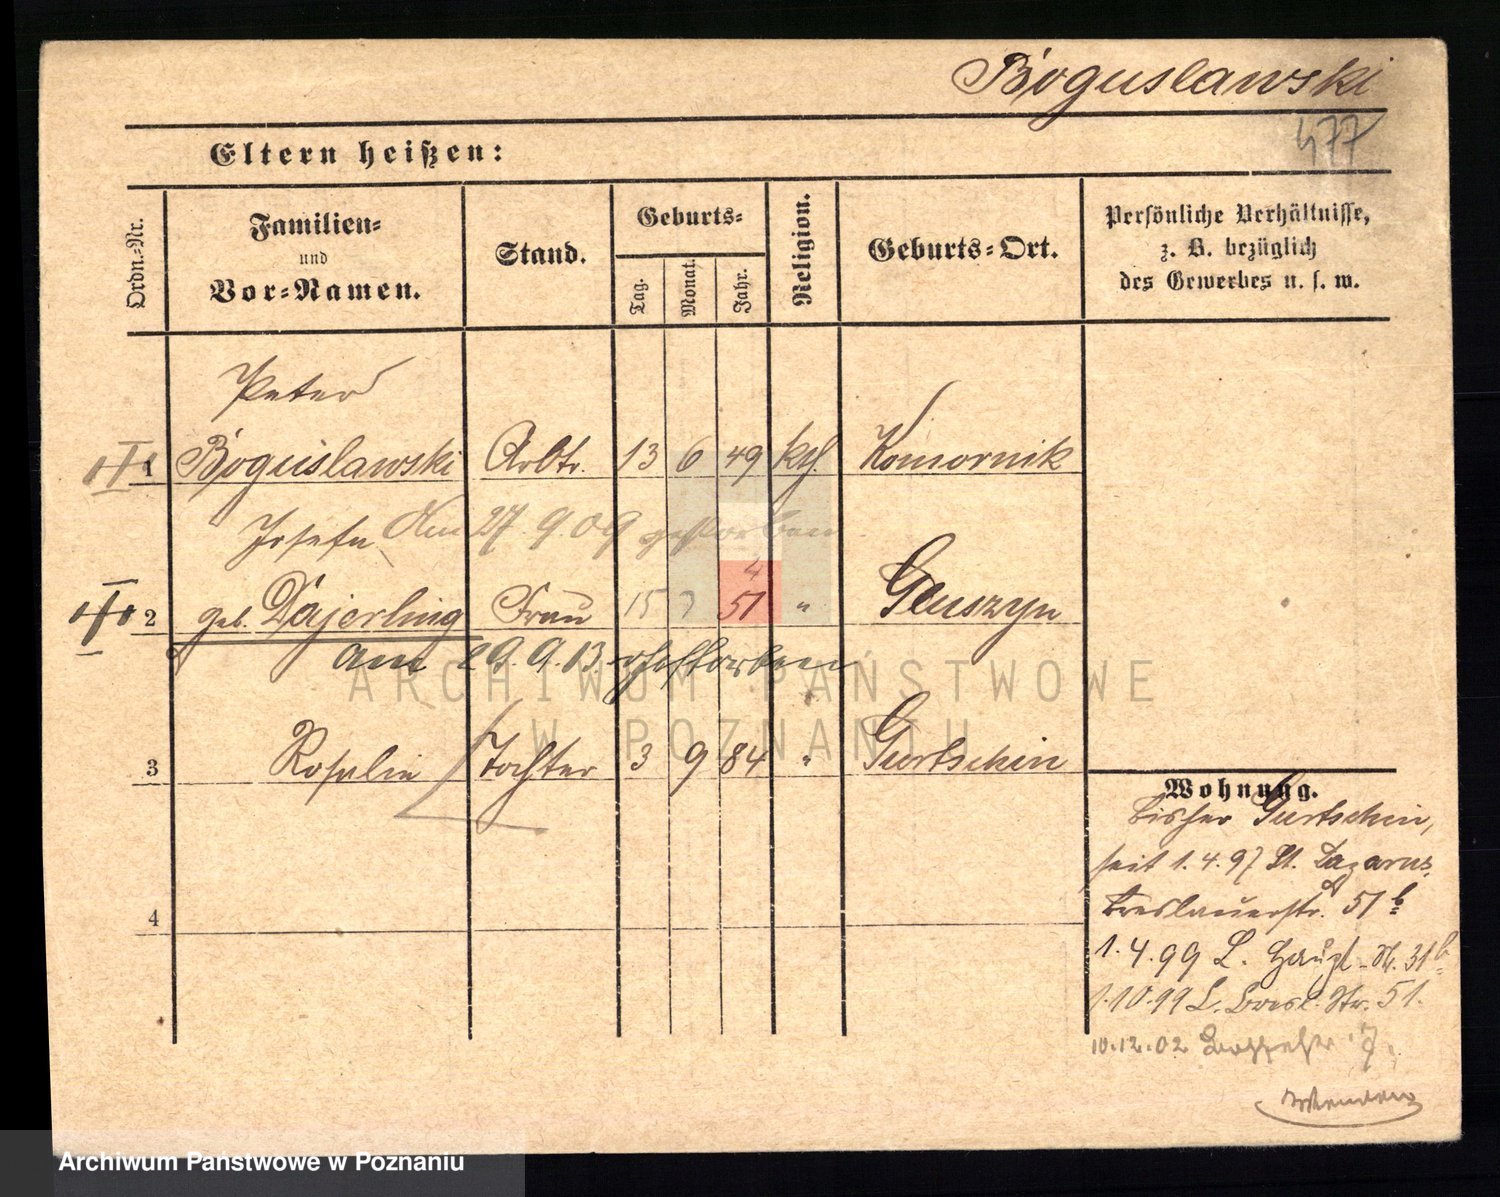 Boguslawski
477
Eltern heißen:
Ordn.-Nr.
Familien-
und
Vor-Namen.
Stand.
Geburts-
Tag.
Monat.
Jahr.
Religion.
Geburts-Ort.
Persönliche Verhältnisse,
z. B. bezüglich
des Gewerbes u. s. w.
Peter
1 Boguslawski Arbtr. 13 6 49 kth. Komornik
Am 27. 9. 09 gestorben
Josefa
4
2 geb. Dajerling Frau 15 3 51 " Gluszyn
am 29. 9. 13 gestorben
3 Rosalie Tochter 3 9 84 " Gurtschin
4
Wohnung.
bisher Gurtschin,
seit 1.4.97 St. Lazarus,
Breslauerstr. 51 b
1.4.99 L. Haupt-St. 31 b
1.10.99 L. Bresl. Str. 51.
10.12.02
ARCHIWUM PAŃSTWOWE
W POZNANIU
Archiwum Państwowe w Poznaniu